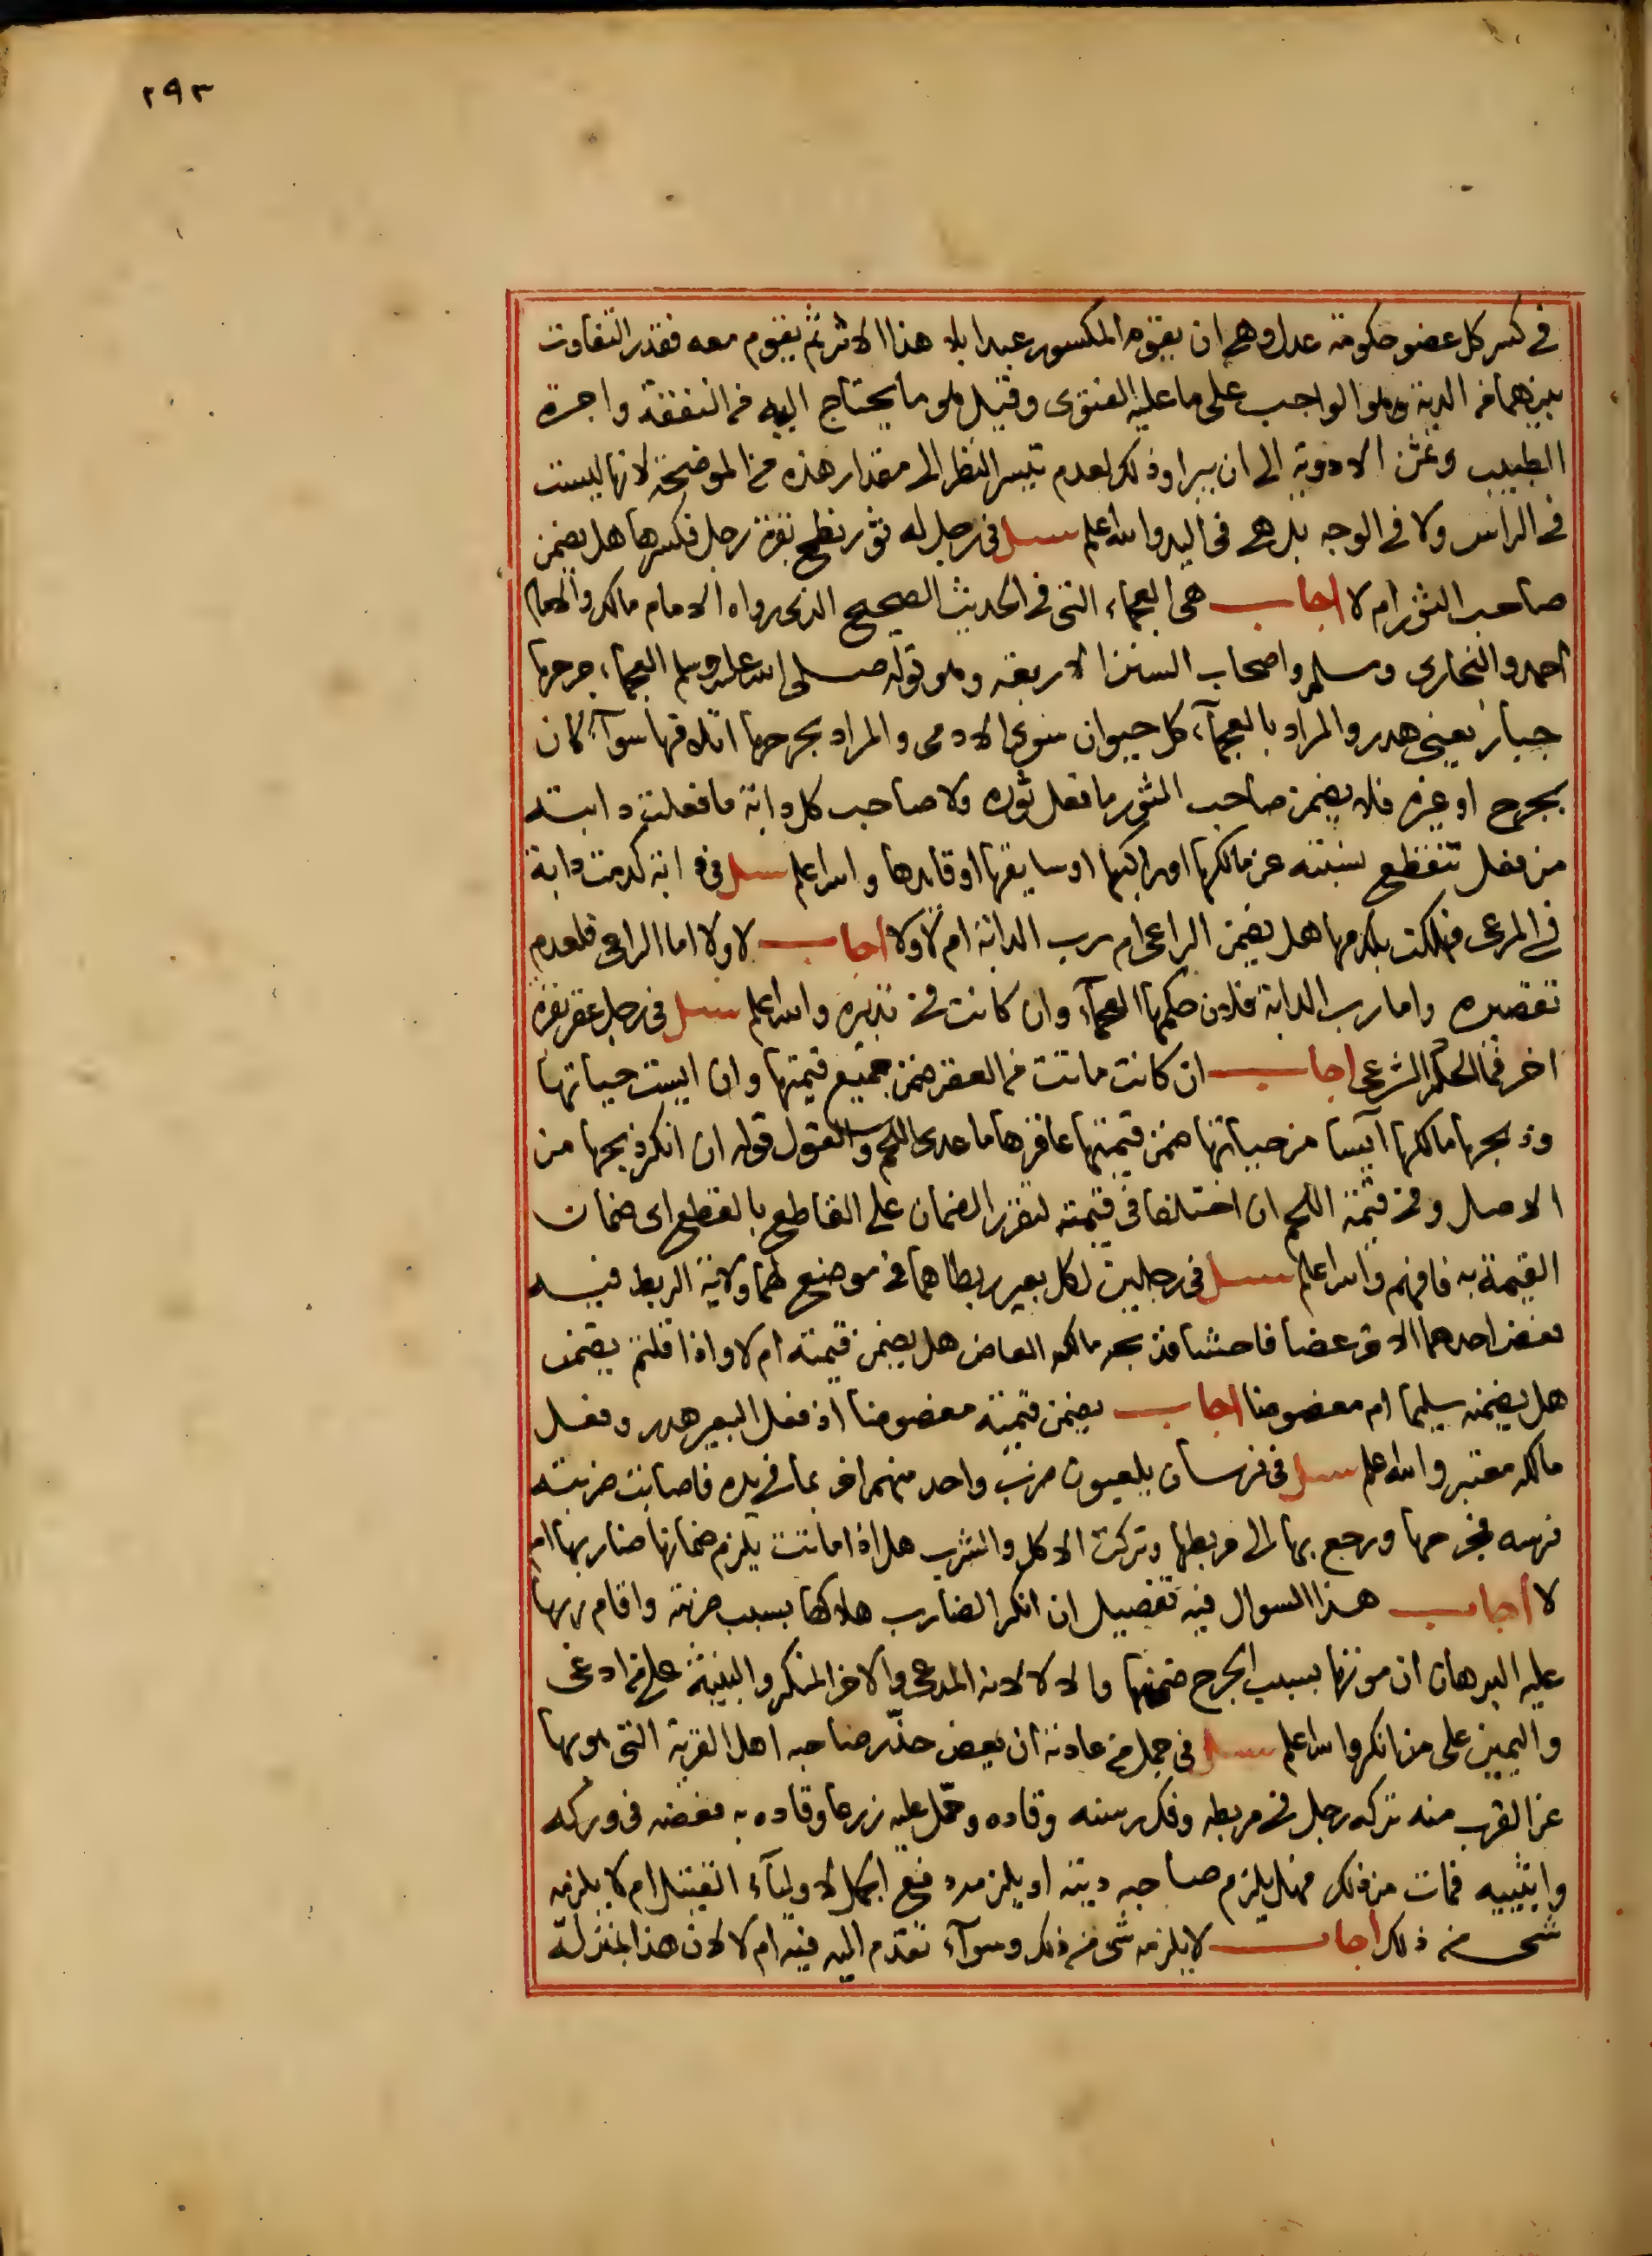 ٢٩٣
في كسر كل عضو حكومة عدل وهي ان يقوم المكسور عبدا بلا هذا الاثر ثم يقوم معه فقدر التفاوت
بينهما من الدية وهو الواجب على ما عليه الفتوى وقيل هو ما يحتاج اليه من النفقة واجرة
الطبيب وثمن الادوية الى ان يبرا وذلك لعدم تيسر النظر الى مقدار هذه من الموضحة لانها ليست
في الراس ولا في الوجه بل هي في اليد والله اعلم سل في رجل له ثور نطح بقرة رجل فكسرها هل يضمن
صاحب الثور ام لا اجاب هي العجماء التي في الحديث الصحيح الذي رواه الامام مالك والامام
احمد والبخاري ومسلم واصحاب السنن الاربعة وهو قوله صلى الله عليه وسلم العجماء جرحها
جبار يعني هدر والمراد بالعجمآء كل حيوان سوى الادمي والمراد بجرحها اتلافها سوآء كان
بجرح او غيره فلا يضمن صاحب الثور ما فعل ثوره ولا صاحب كل دابة ما فعلت دابته
من فعل تنقطع نسبته عن مالكها او راكبها او سايقها او قايدها والله اعلم سل في دابة كدمت دابة
في المرعى فهلكت بكدمها هل يضمن الراعي ام رب الدابة ام لا ولا اجاب لا ولا اما الراعي فلعدم
تقصيره واما رب الدابة فلان حكمها العجمآء وان كانت في تدبيره والله اعلم سل في رجل عقر بقرة
اخر فما الحكم الشرعي اجاب ان كانت ماتت من العقر ضمن جميع قيمتها وان ايست حياتها
وذبحها مالكها آيسا من حياتها ضمن قيمتها عاقرها ما عدى اللحم والقول قوله ان انكر ذبحها من
الاصل وفي قيمة اللحم ان اختلفا في قيمته لتقرر الضمان على القاطع بالقطع اي ضمان
القيمة به فافهم والله اعلم سل في رجلين لكل بعير ربطاهما في موضع لهما ولاية الربط فيه
فعض احدهما الاخر عضا فاحشا فذبح مالكه العاض هل يضمن قيمته ام لا واذا قلتم يضمن
هل يضمنه سليما ام معضوضا اجاب يضمن قيمته معضوضا اذ فعل البعير هدر وفعل
مالكه معتبر والله اعلم سل في فرسان يلعبون ضرب واحد منهم اخر بما في يده فاصابت ضربته
فرسه فجرحها ورجع بها الى مربطها وتركت الاكل والشرب هل اذا ماتت يلزم ضمانها ضاربها ام
لا اجاب هذا السوال فيه تفصيل ان انكر الضارب هلاكها بسبب ضربته واقام ربها
عليه البرهان ان موتها بسبب الجرح ضمنها والا لا لانه المدعي والاخر المنكر والبينة على من ادعى
واليمين على من انكر والله اعلم سل في جمل من عادته ان يعض حذّر صاحبه اهل القرية التي هو بها
عن القرب منه تركه رجل في مربطه وفك رسنه وقاده وحمّل عليه زرعا وقاده به فعضه في وركه
وانثييه فمات من ذلك فهل يلزم صاحبه ديته او يلزمه دفع الجمل لاوليآء القتيل ام لا يلزمه
شي من ذلك اجاب لا يلزمه شي من ذلك وسوآء تقدم اليه فيه ام لا لان هذا بمنزلة